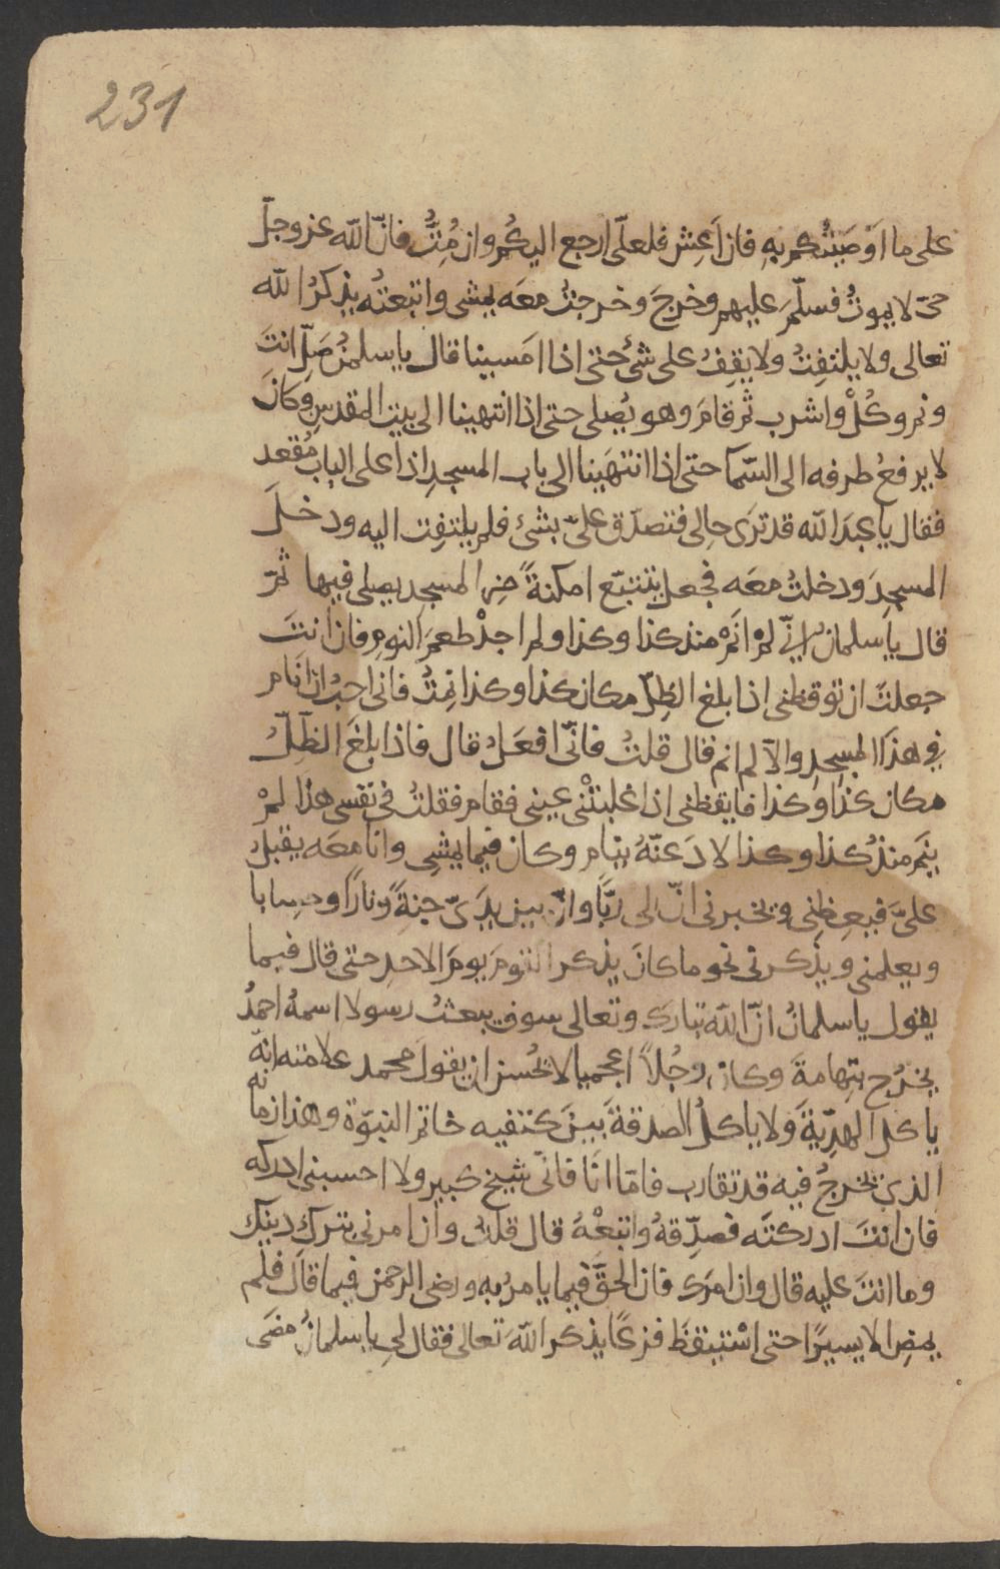 231
على ما اوصيتُكم بهِ فان اَعِش فلعلّى ارجع اليكُم وان مُتُّ فانّ الله عز وجلّ
حىّ لا يموتُ فسلّمَ عليهم وخرجَ وخرجتُ معَه يمشى واتبعتُه يذكرُ الله
تعالى ولا يلتفِتُ ولا يقِفُ على شئ حتى اذا امسينا قال يا سلمنُ صَلِّ انتَ
ونم وكُلْ واشرب ثم قامَ وهو يُصلى حتى اذا انتهينا الى بيت المقدسِ وكانَ
لا يرفعُ طرفه الى السّما حتى اذا انتهَينا الى باب المسجدِ اذا على الباب مُقعد
فقال يا عبدَ الله قد ترَى حالى فتصدّق علىّ بشئ فلم يلتفِت اليه ودخلَ
المسجِدَ ودخلتُ معَه فجعل يتتبّع امكنةً مِن المسجِد يصلى فيها ثمّ
قال يا سلمان انّي لمْ اَنَمْ منذ كذا وكذا ولم اجدْ طعمَ النومِ فان انتَ
جعلتَ ان توقظنى اذا بلغ الظِلّ مكان كذا وكذا نِمتُ فانى احبُ ان انام
في هذا المسجِدِ والّا لم انم قال قلتُ فانّى افعَلُ قال فاذا بلغَ الظّلّ
مكان كذا وكذا فايقظنى اذا غلبتْنى عينى فقام فقلتُ فى نفسى هذا لمْ
ينَم منذُ كذا وكذا لادَعنّهُ ينام وكان فيما يمشِى وانا معَه يقبلُ
علىَّ فيعِظنِى ويخبرنى انّ لى ربًّا وانّ بين يدَىّ جنةً ونارًا وحِسابا
ويعلمنى ويذكرنى نحو ما كانَ يذكر القومَ يومَ الاحدِ حتى قال فيما
يقول يا سلمانُ انّ اللهَ تبارك وتعالى سوف يبعثُ رسولا اسمهُ احمدُ
يخرُج بتِهامةَ وكان رجُلاً اعجميا لا يُحسن ان يقولَ محمد علامته انّه
ياكل الهدِيّةَ ولا ياكلُ الصدقةَ بينَ كتفيه خاتم النبّوة وهذا زمانه
الذى يخرجُ فيه قد تقارب فامّا انَا فانّى شيخ كبير ولا احسبنى ادركه
فان انتَ ادركتَه فصدِّقهُ واتبعْهُ قال قلتُ وان امرنى بترك دينك
وما انتَ عليه قال وان امرَك فان الحقَّ فيما يامرُ به ورضى الرحمن فيما قالَ فلم
يمضِ الا يسيرًا حتى اسْتيقظَ فزعًا يذكر اللهَ تعالى فقال لي يا سلمانُ مضَى